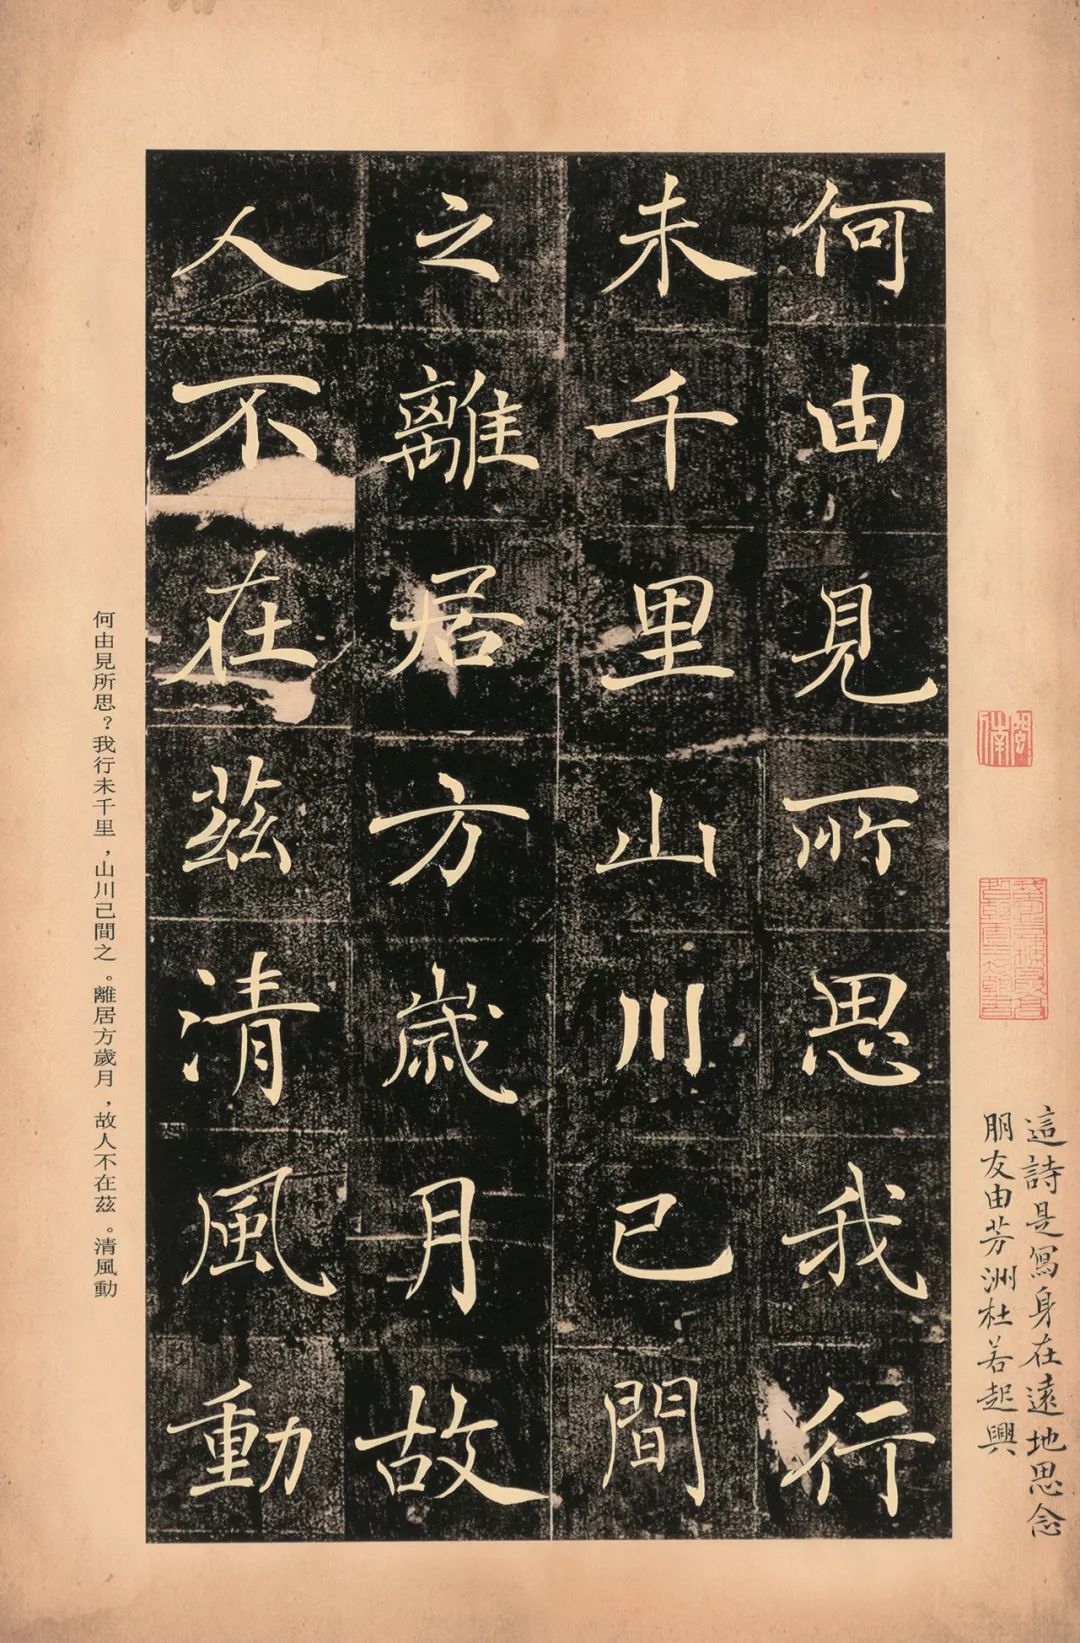 何由見所思我行
未千里山川已間
之離居方歲月故
人不在茲清風動
何由見所思？我行未千里，山川已間之。離居方歲月，故人不在茲。清風動
這詩是寫身在遠地思念
朋友由芳洲杜若起興